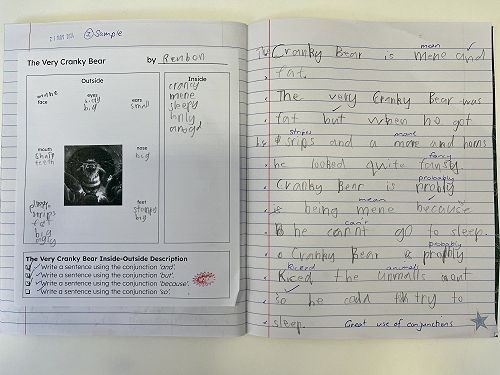 21 MAY 2024
② Sample
The Very Cranky Bear by
Outside
Inside
face
eyes
big
ears
small
mouth
sharp
teeth
nose
big
feet
big
fat
big
cranky
mene
sleepy
The Very Cranky Bear Inside-Outside Description
✓ Write a sentence using the conjunction 'and'.
✓ Write a sentence using the conjunction 'but'.
✓ Write a sentence using the conjunction 'because'.
Write a sentence using the conjunction 'so'.
The Cranky Bear is mene and
mean
fat.
The very Cranky Bear was
fat but when he got
stripes mane
srips and a mane and horns
fancy
he looked quite
probably
Cranky Bear is
mean
is being mene because
can't
he cannt go to sleep.
probably
Cranky Bear is
kicked animals
Kiced the unmalls out
so he could try to
sleep.
Great use of conjunctions